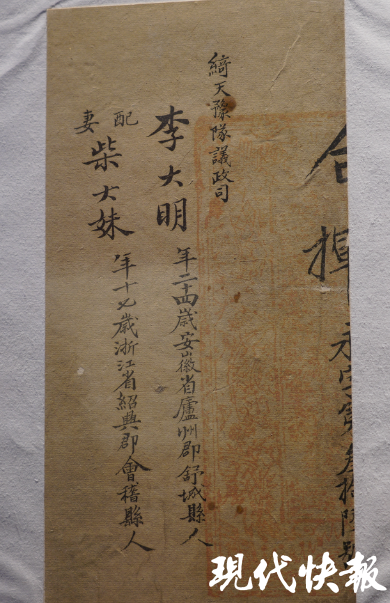 合揮 永字 叁拾
綺天豫隊議政司
李大明 年二十四歲安徽省廬州郡舒城縣人
配妻 柴大妹 年十七歲浙江省紹興郡會稽縣人
現代快報